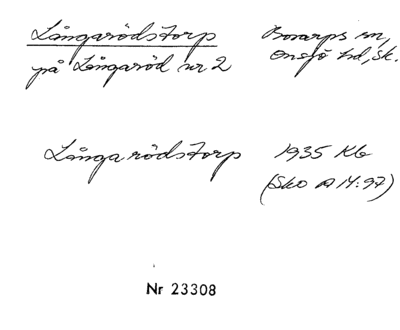 Långarödstorp Bosarps sn,
på Långaröd nr 2 Onsjö hd, Sk.
Långarödstorp 1935 Kb
(Sko A 14:97)
Nr 23308